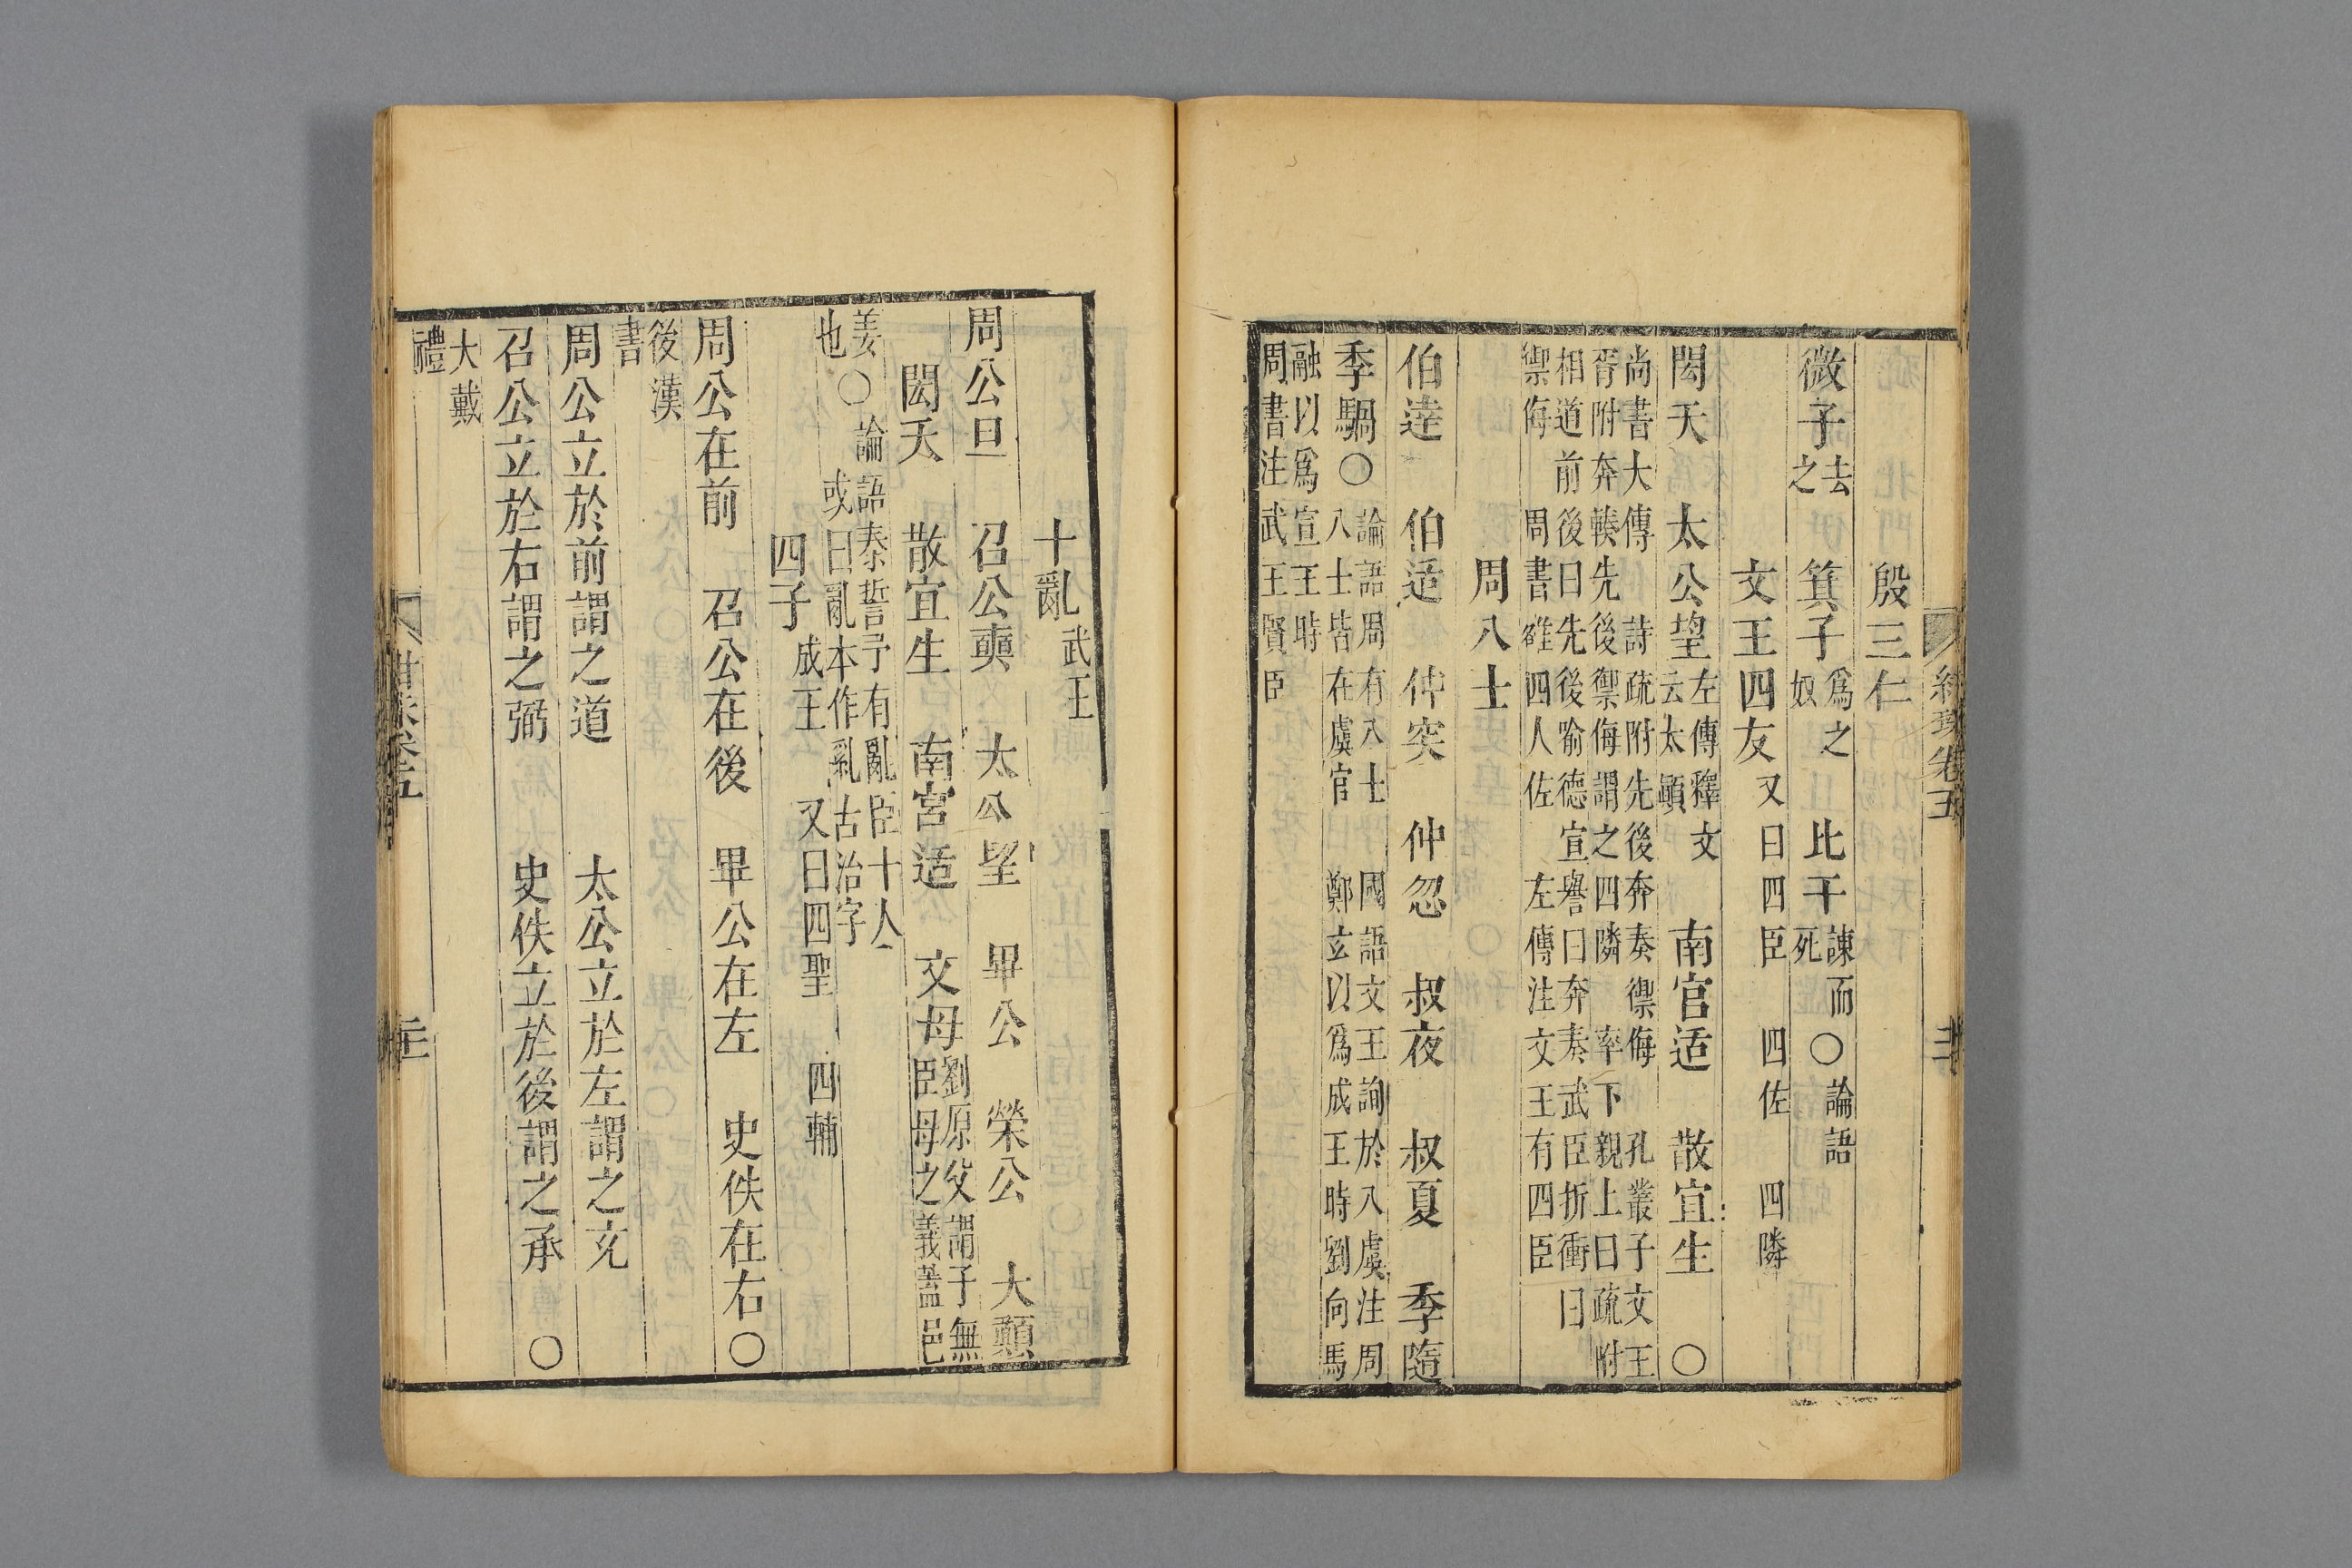 殷三仁
微子去之 箕子爲之奴 比干諫而死 〇論語
文王四友又曰四臣 四佐 四隣
閎夭 太公望左傳釋文云太顛 南宮适 散宜生 〇
尚書大傳 詩疏附先後奔奏禦侮 孔叢子文王
胥附奔輳先後禦侮謂之四隣 率下親上曰疏附
相道前後曰先後喻德宣譽曰奔奏武臣折衝曰
禦侮 周書雒四人佐 左傳注文王有四臣
周八士
伯逹 伯适 仲突 仲忽 叔夜 叔夏 季隨
季騧〇論語周有八士 國語文王詢於八虞注周
八士皆在虞官 鄭玄以爲成王時劉向馬
融以爲宣王時
周書注武王賢臣
十亂武王
周公旦 召公奭 太公望 畢公 榮公 大顛
閎夭 散宜生 南宮适 文母劉原父謂子無
臣母之義蓋邑
姜〇論語泰誓予有亂臣十人
也 或曰亂本作乿古治字
四子成王 又曰四聖 四輔
周公在前 召公在後 畢公在左 史佚在右〇
後漢
書
周公立於前謂之道 太公立於左謂之充
召公立於右謂之弼 史佚立於後謂之承 〇
大戴
禮